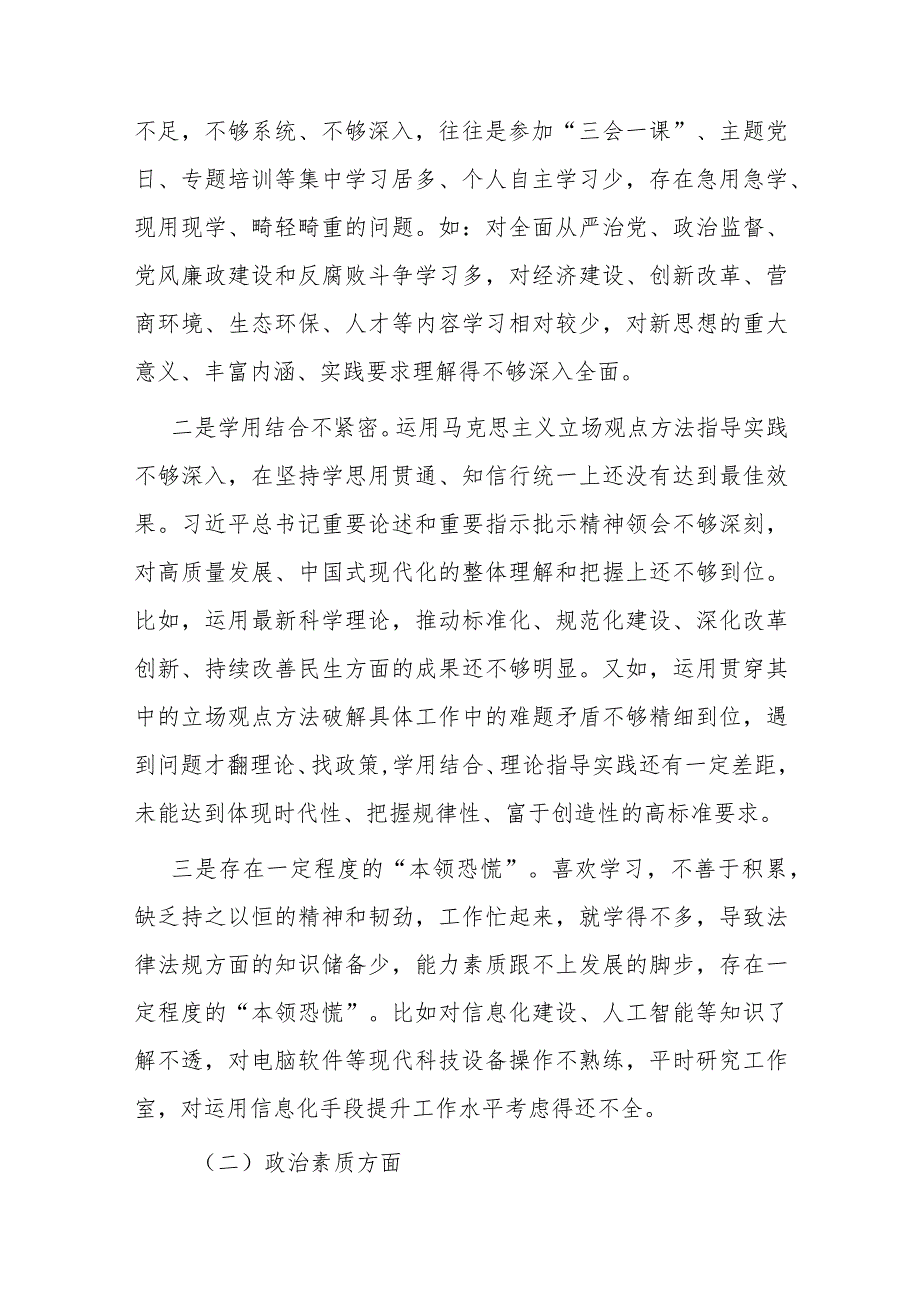 不足，不够系统、不够深入，往往是参加“三会一课”、主题党
日、专题培训等集中学习居多、个人自主学习少，存在急用急学、
现用现学、畸轻畸重的问题。如：对全面从严治党、政治监督、
党风廉政建设和反腐败斗争学习多，对经济建设、创新改革、营
商环境、生态环保、人才等内容学习相对较少，对新思想的重大
意义、丰富内涵、实践要求理解得不够深入全面。
二是学用结合不紧密。运用马克思主义立场观点方法指导实践
不够深入，在坚持学思用贯通、知信行统一上还没有达到最佳效
果。习近平总书记重要论述和重要指示批示精神领会不够深刻，
对高质量发展、中国式现代化的整体理解和把握上还不够到位。
比如，运用最新科学理论，推动标准化、规范化建设、深化改革
创新、持续改善民生方面的成果还不够明显。又如，运用贯穿其
中的立场观点方法破解具体工作中的难题矛盾不够精细到位，遇
到问题才翻理论、找政策,学用结合、理论指导实践还有一定差距，
未能达到体现时代性、把握规律性、富于创造性的高标准要求。
三是存在一定程度的“本领恐慌”。喜欢学习，不善于积累，
缺乏持之以恒的精神和韧劲，工作忙起来，就学得不多，导致法
律法规方面的知识储备少，能力素质跟不上发展的脚步，存在一
定程度的“本领恐慌”。比如对信息化建设、人工智能等知识了
解不透，对电脑软件等现代科技设备操作不熟练，平时研究工作
室，对运用信息化手段提升工作水平考虑得还不全。
（二）政治素质方面